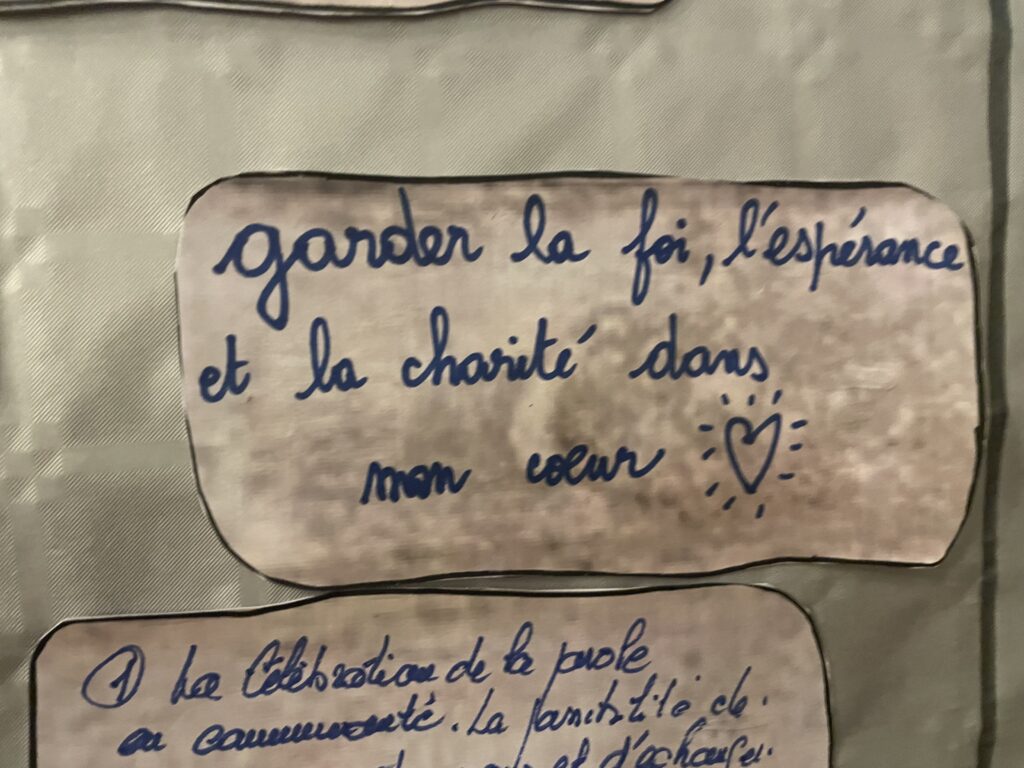 garder la foi, l'espérance
et la charité dans
mon coeur
① La Célébration de la parole
en communauté. La possibilité de
et d'échanger